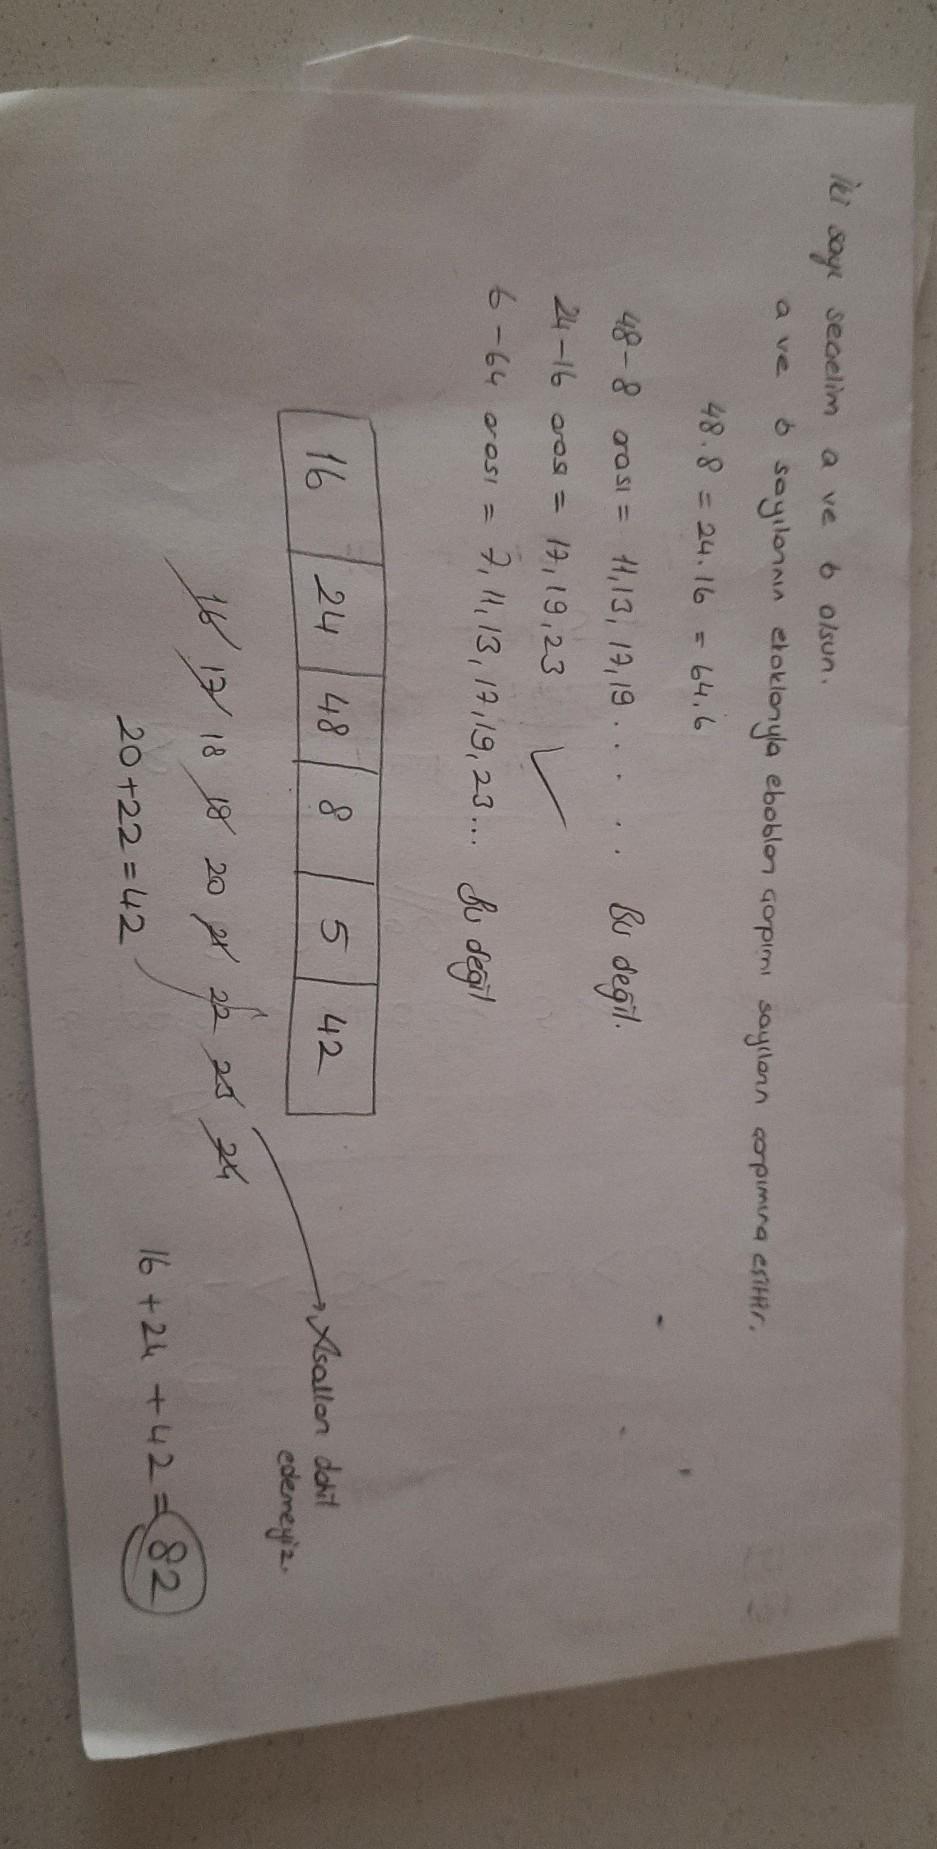 İki sayı seçelim a ve b olsun.
a ve b sayılarının ekoklarıyla eboblarn çarpımı sayıların çarpımına eşittir.
48.8 = 24.16 = 64.6
48-8 arası = 11,13,17,19.... Bu değil.
24-16 arası = 17,19,23 ✓
6-64 arası = 7,11,13,17,19,23... Bu değil
16 24 48 8 5 42
16 17 18 19 20 21 22 23 24
Asalları dahil
edemeyiz.
20+22=42
16+24+42=82